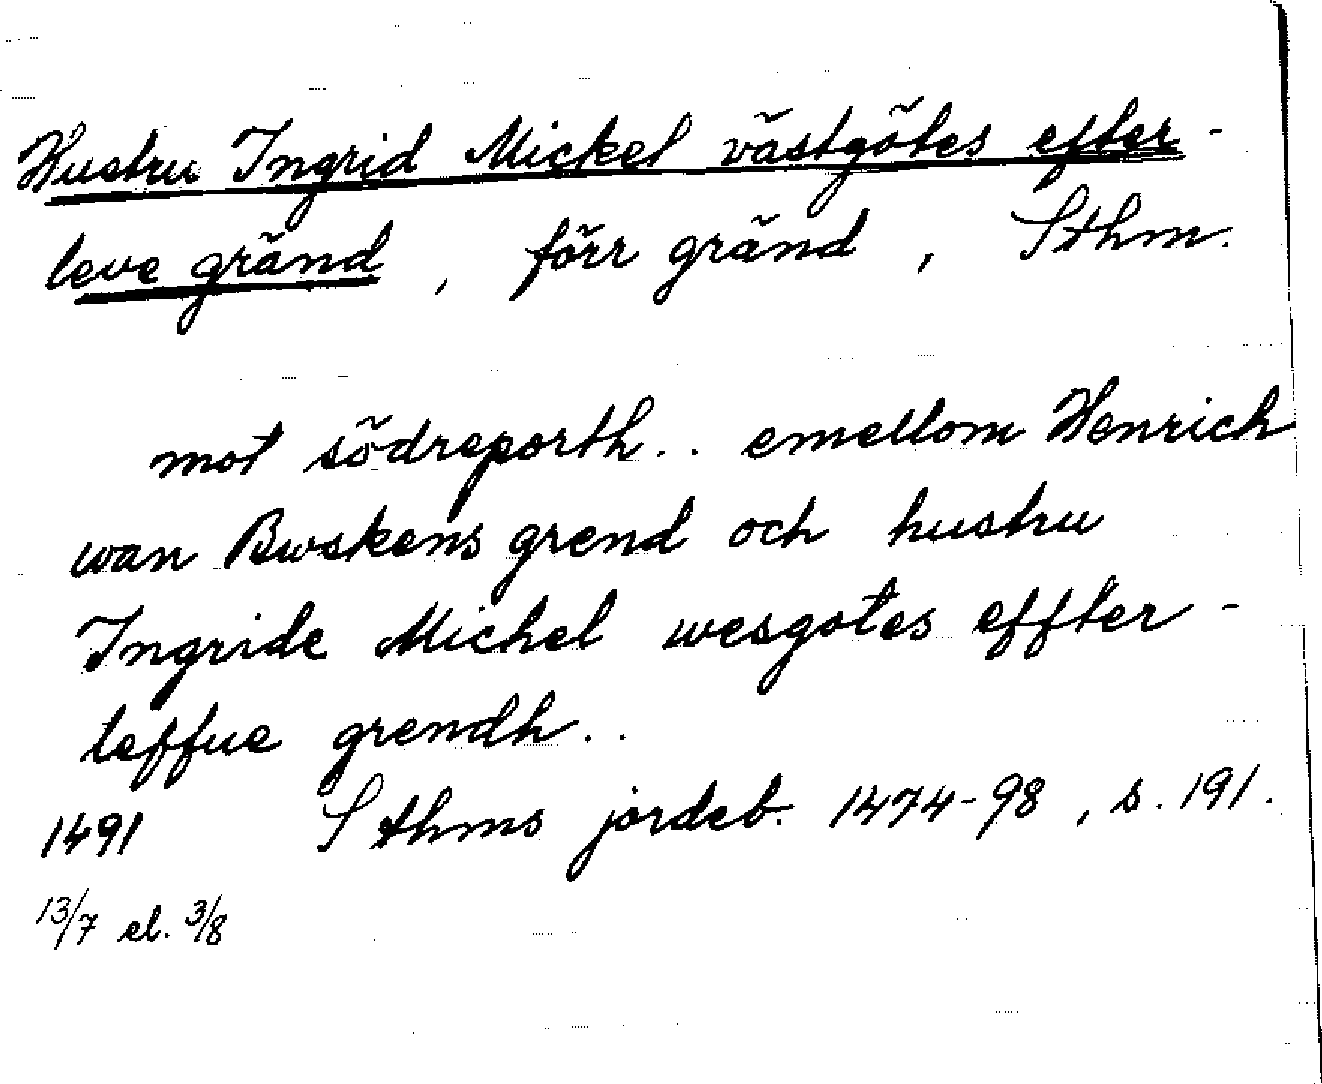 Hustru Ingrid Mickel västgötes efter-
leve gränd, förr gränd, Sthm.
mot södreporth.. emellom Henrich
wan Bwskens grend och hustru
Ingride Michel wesgotes effter-
leffue grendh..
1491 Sthms jordeb. 1474-98, s. 191.
13/7 el. 3/8